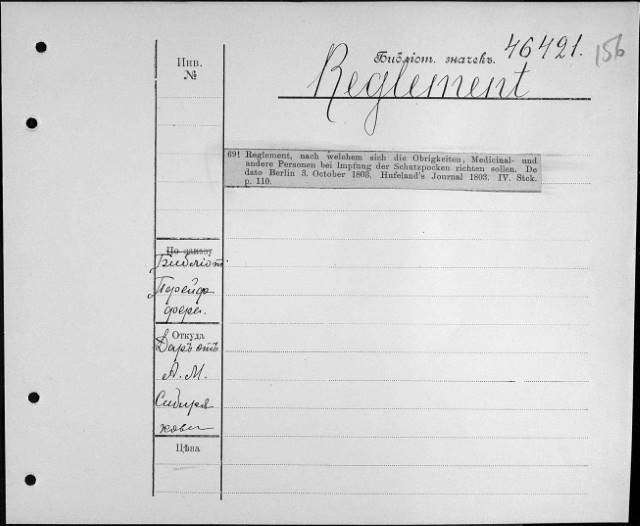 Инв.
№
Библіот. значекъ.
46421.
156
Reglement
691 Reglement, nach welchem sich die Obrigkeiten, Medicinal- und
andere Personen bei Impfung der Schutzpocken richten sollen. De
dato Berlin 3. October 1803. Hufeland's Journal 1803. IV. Stck.
p. 110.
По заказу
Библіот.
Перейдр
фере.
Откуда
Даръ отъ
А. М.
Сибиря
кова
Цѣна